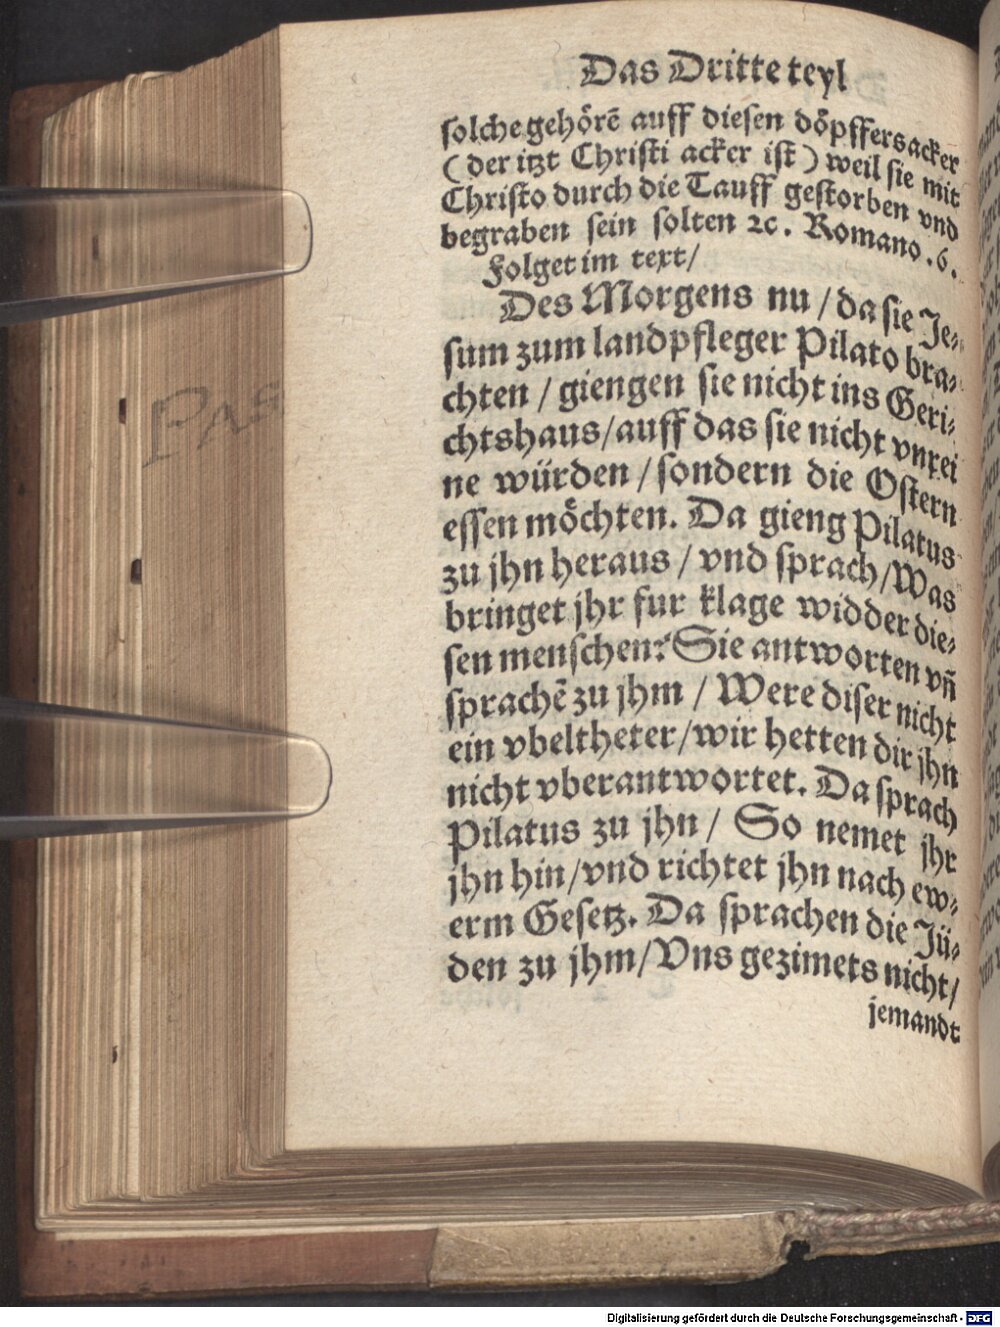 Das Dritte teyl
solche gehörẽ auff diesen döpffersacker
(der itzt Christi acker ist) weil sie mit
Christo durch die Tauff gestorben vnd
begraben sein solten ꝛc. Romano.6.
Folget im text/
Des Morgens nu/da sie Je⸗
sum zum landpfleger Pilato bra⸗
chten/giengen sie nicht ins Geri⸗
chtshaus/auff das sie nicht vnrei
ne würden/sondern die Ostern
essen möchten. Da gieng Pilatus
zu jhn heraus/vnd sprach/Was
bringet jhr fur klage widder die⸗
sen menschen? Sie antworten vñ
sprachẽ zu jhm/Were diser nicht
ein vbeltheter/wir hetten dir jhn
nicht vberantwortet. Da sprach
Pilatus zu jhn/So nemet jhr
jhn hin/vnd richtet jhn nach ew⸗
erm Gesetz. Da sprachen die Jü⸗
den zu jhm/Vns gezimets nicht/
jemandt
PAS
Digitalisierung gefördert durch die Deutsche Forschungsgemeinschaft - DFG